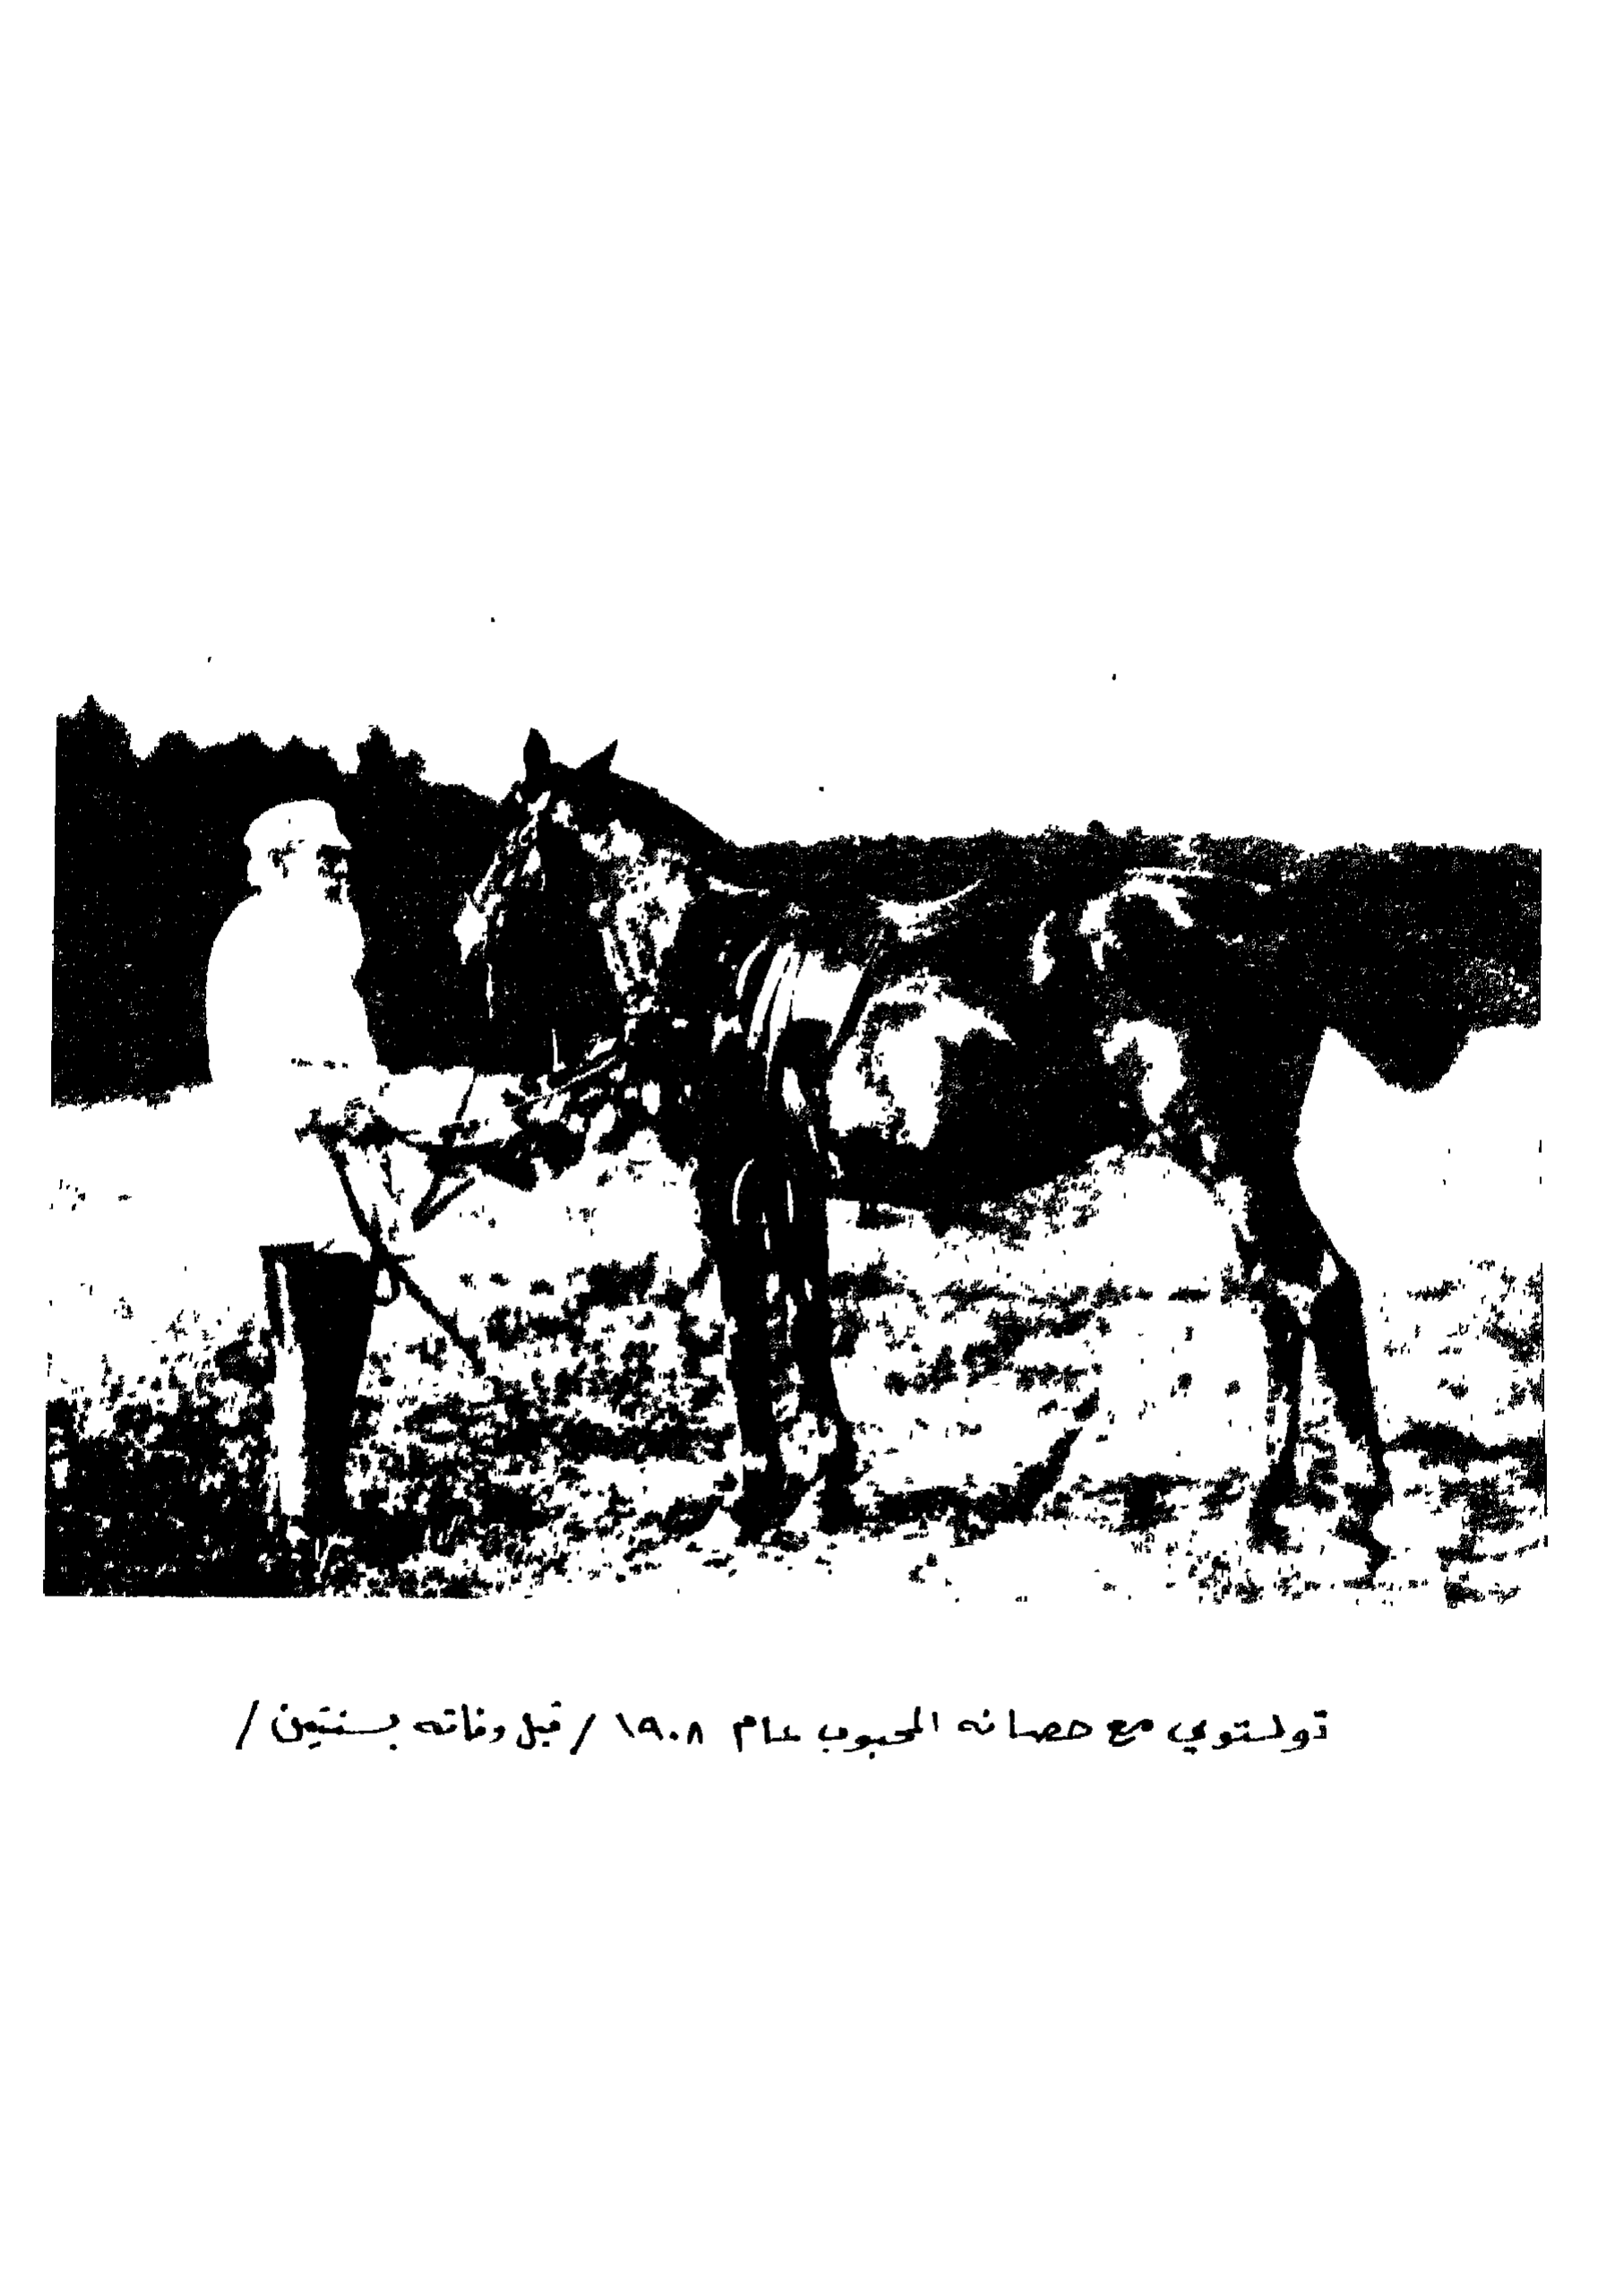 تولستوي مع حصانه المحبوب عام ١٩٠٨ / قبل وفاته بسنتين /